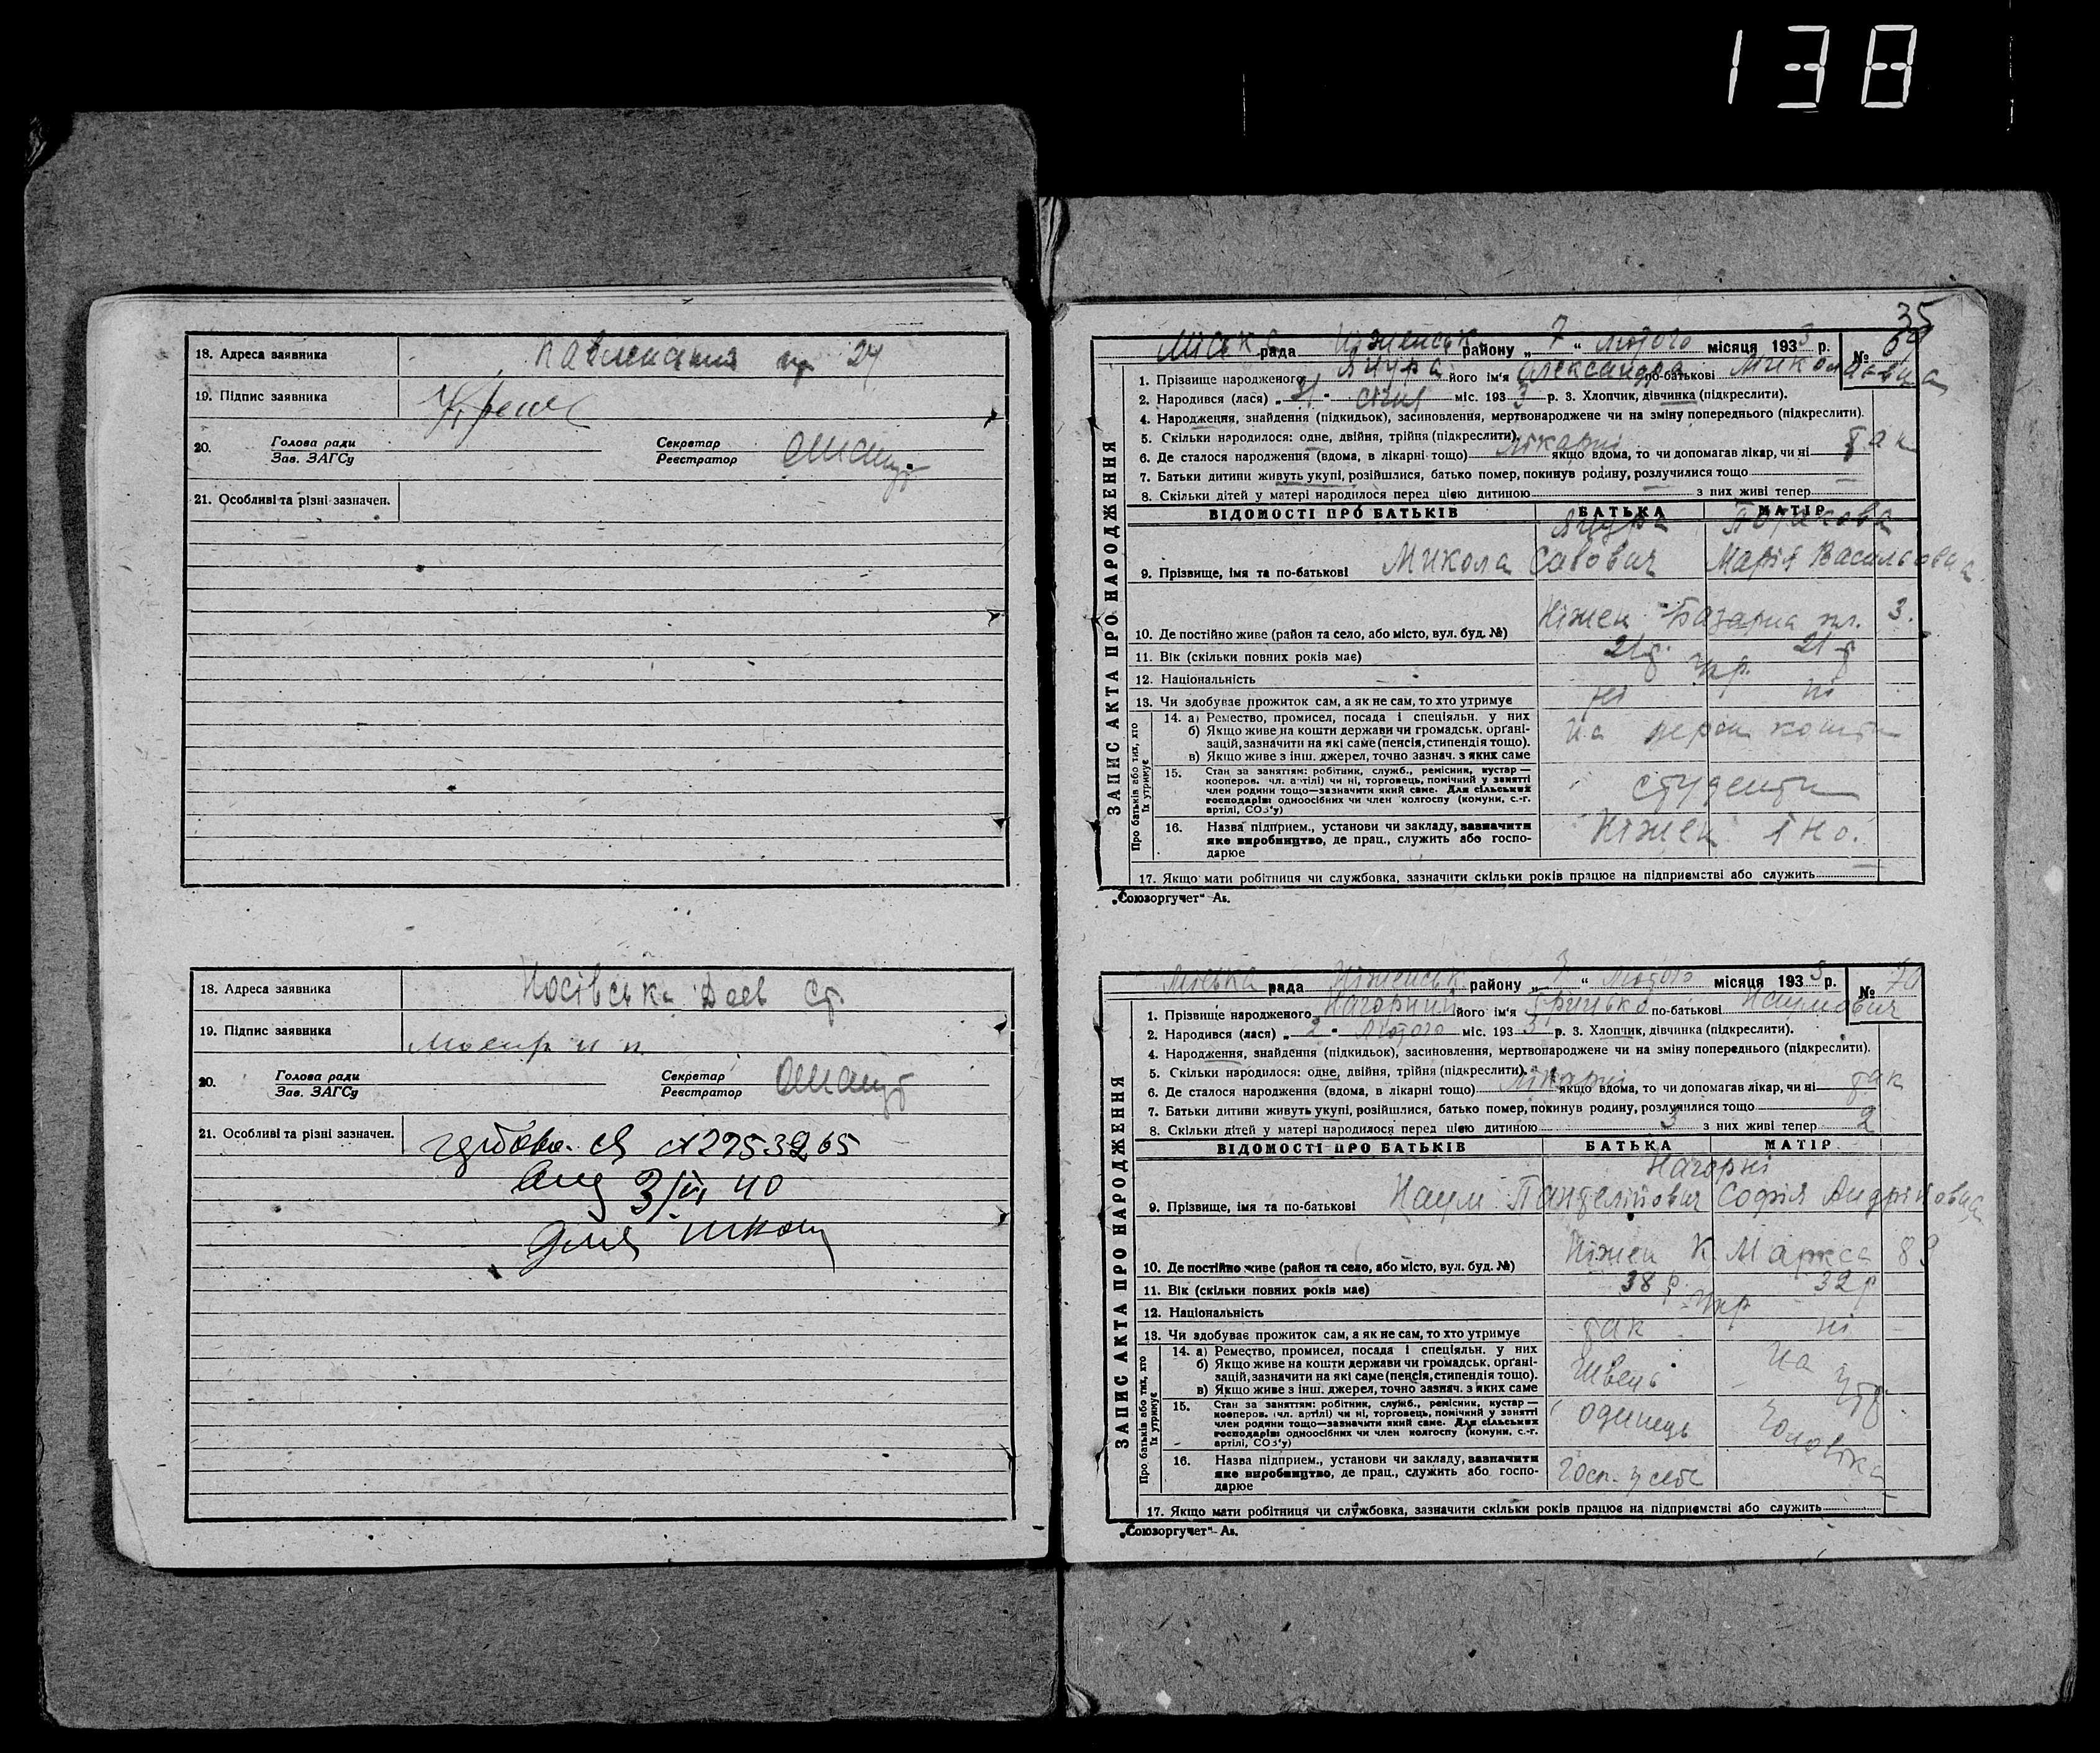 138
18. Адреса заявника
24
19. Підпис заявника
20. Голова ради Секретар
Зав. ЗАГСу Реєстратор
21. Особливі та різні зазначен.
18. Адреса заявника Носівська
19. Підпис заявника
20. Голова ради Секретар
Зав. ЗАГСу Реєстратор
21. Особливі та різні зазначен.
3/VI 40
для школи
35
Міська рада Ніженськ. району „ 7 “ лютого місяця 1933 р. № 69
1. Прізвище народженого Яцура його ім'я Олександра по-батькові Миколаєвна
2. Народився (лася) „ 31 “ січня міс. 1933 р. 3. Хлопчик, дівчинка (підкреслити).
4. Народження, знайдення (підкидьок), засиновлення, мертвонароджене чи на зміну попереднього (підкреслити).
5. Скільки народилося: одне, двійня, трійня (підкреслити).
6. Де сталося народження (вдома, в лікарні тощо) лікарні якщо вдома, то чи допомагав лікар, чи ні так
7. Батьки дитини живуть укупі, розійшлися, батько помер, покинув родину, розлучилися тощо
8. Скільки дітей у матері народилося перед цією дитиною з них живі тепер
ЗАПИС АКТА ПРО НАРОДЖЕННЯ
ВІДОМОСТІ ПРО БАТЬКІВ БАТЬКА МАТІР
Яцура
9. Прізвище, імя та по-батькові Микола Савович Марія Васильовна
10. Де постійно живе (район та село, або місто, вул. буд. №) Ніжен Базарна пл. 3.
11. Вік (скільки повних років має) 21 р. 21 р
12. Національність Укр.
13. Чи здобуває прожиток сам, а як не сам, то хто утримує ні ні
Про батьків або тих, хто їх утримує
14. а) Ремество, промисел, посада і спеціяльн. у них
б) Якщо живе на кошти держави чи громадськ. органі-
зацій, зазначити на які саме (пенсія, стипендія тощо).
в) Якщо живе з інш. джерел, точно зазнач. з яких саме
на держ кошти
15. Стан за заняттям: робітник, служб., ремісник, кустар —
кооперов. (чл. артілі) чи ні, торговець, помічний у занятті
член родини тощо—зазначити який саме. Для сільських
господарів: одноосібних чи член колгоспу (комуни, с.-г.
артілі, СОЗ'у)
студенти
16. Назва підприєм., установи чи закладу, зазначити
яке виробництво, де прац., служить або госпо-
дарює
Ніжен ІНО.
17. Якщо мати робітниця чи службовка, зазначити скільки років працює на підприємстві або служить
„Союзоргучет“ Ав.
Міська рада Ніженськ. району „ 7 “ лютого місяця 1933 р. № 70
1. Прізвище народженого Нагорний його ім'я Грицько по-батькові Наумович
2. Народився (лася) „ 2 “ лютого міс. 1933 р. 3. Хлопчик, дівчинка (підкреслити).
4. Народження, знайдення (підкидьок), засиновлення, мертвонароджене чи на зміну попереднього (підкреслити).
5. Скільки народилося: одне, двійня, трійня (підкреслити).
6. Де сталося народження (вдома, в лікарні тощо) лікарні якщо вдома, то чи допомагав лікар, чи ні так
7. Батьки дитини живуть укупі, розійшлися, батько помер, покинув родину, розлучилися тощо
8. Скільки дітей у матері народилося перед цією дитиною 3 з них живі тепер 2
ЗАПИС АКТА ПРО НАРОДЖЕННЯ
ВІДОМОСТІ ПРО БАТЬКІВ БАТЬКА МАТІР
Нагорні
9. Прізвище, імя та по-батькові Наум Пантелійович Софія Андрійовна
10. Де постійно живе (район та село, або місто, вул. буд. №) Ніжен К. Маркса 89
11. Вік (скільки повних років має) 38 р. 32 р
12. Національність Укр
13. Чи здобуває прожиток сам, а як не сам, то хто утримує так ні
Про батьків або тих, хто їх утримує
14. а) Ремество, промисел, посада і спеціяльн. у них
б) Якщо живе на кошти держави чи громадськ. органі-
зацій, зазначити на які саме (пенсія, стипендія тощо).
в) Якщо живе з інш. джерел, точно зазнач. з яких саме
швець на утр.
15. Стан за заняттям: робітник, служб., ремісник, кустар —
кооперов. (чл. артілі) чи ні, торговець, помічний у занятті
член родини тощо—зазначити який саме. Для сільських
господарів: одноосібних чи член колгоспу (комуни, с.-г.
артілі, СОЗ'у)
одинець чоловіка
16. Назва підприєм., установи чи закладу, зазначити
яке виробництво, де прац., служить або госпо-
дарює
госп. у себе
17. Якщо мати робітниця чи службовка, зазначити скільки років працює на підприємстві або служить
„Союзоргучет“ Ав.